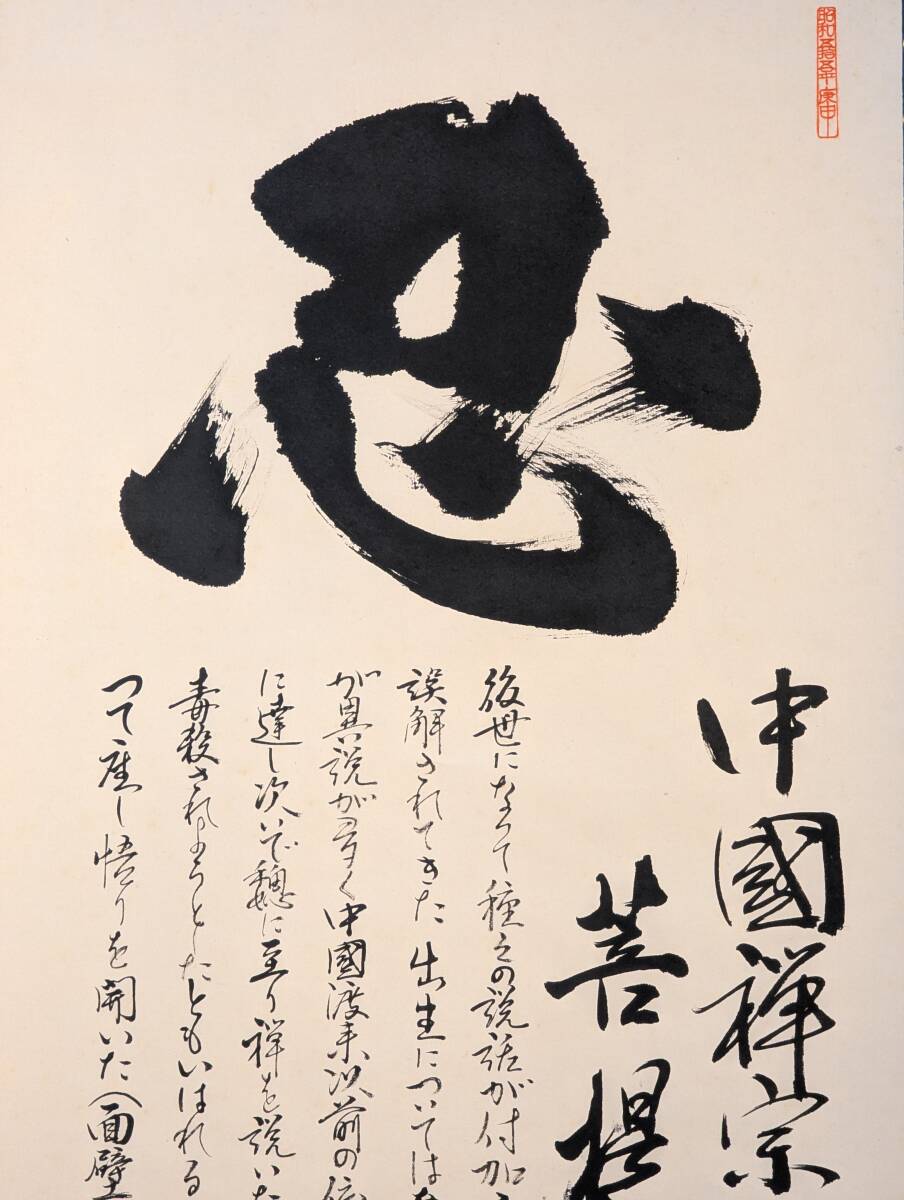 昭和五拾五年庚申
忍
中國禅宗
菩提
後世になって種々の説話が付加
誤解されてきた出生については
が異説が多く中國渡来以前の
に達し次いで魏に至り禅を説いた
毒殺されようとしたともいはれる
つて座し悟りを開いた(面壁